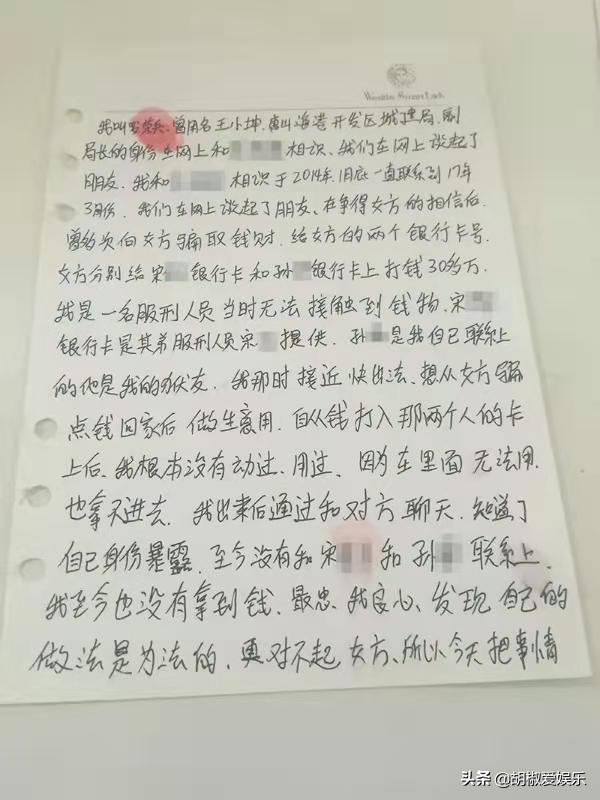 我叫罗荣兵、曾用名王小坤.唐山海港开发区城建局.副
局长的身份在网上和 相识、我们在网上说起了
朋友.我和 相识于2014年.1月底一直联系到17年
3月份.我们在网上谈起了朋友、在争得女方的相信后.
曾多次向女方骗取钱财.给女方的两个银行卡号.
女方分别给宋 银行卡和孙 银行卡上打钱30多万.
我是一名服刑人员当时无法接触到钱物.宋
银行卡是其弟服刑人员宋 提供.孙 是我自己联系上
的他是我的狱友.我那时接近快出法、想从女方骗
点钱回家后做生意用.自从钱打入那两个人的卡
上后、我根本没有动过、用过、因为在里面无法用.
也拿不进去.我出来后通过和对方聊天.知道了
自己身份暴露.至今没有和宋 和孙 联系上.
我至今也没有拿到钱、最忠、我良心、发现自己的
做法是为法的.更对不起女方、所以今天把事情
头条 @胡椒爱娱乐